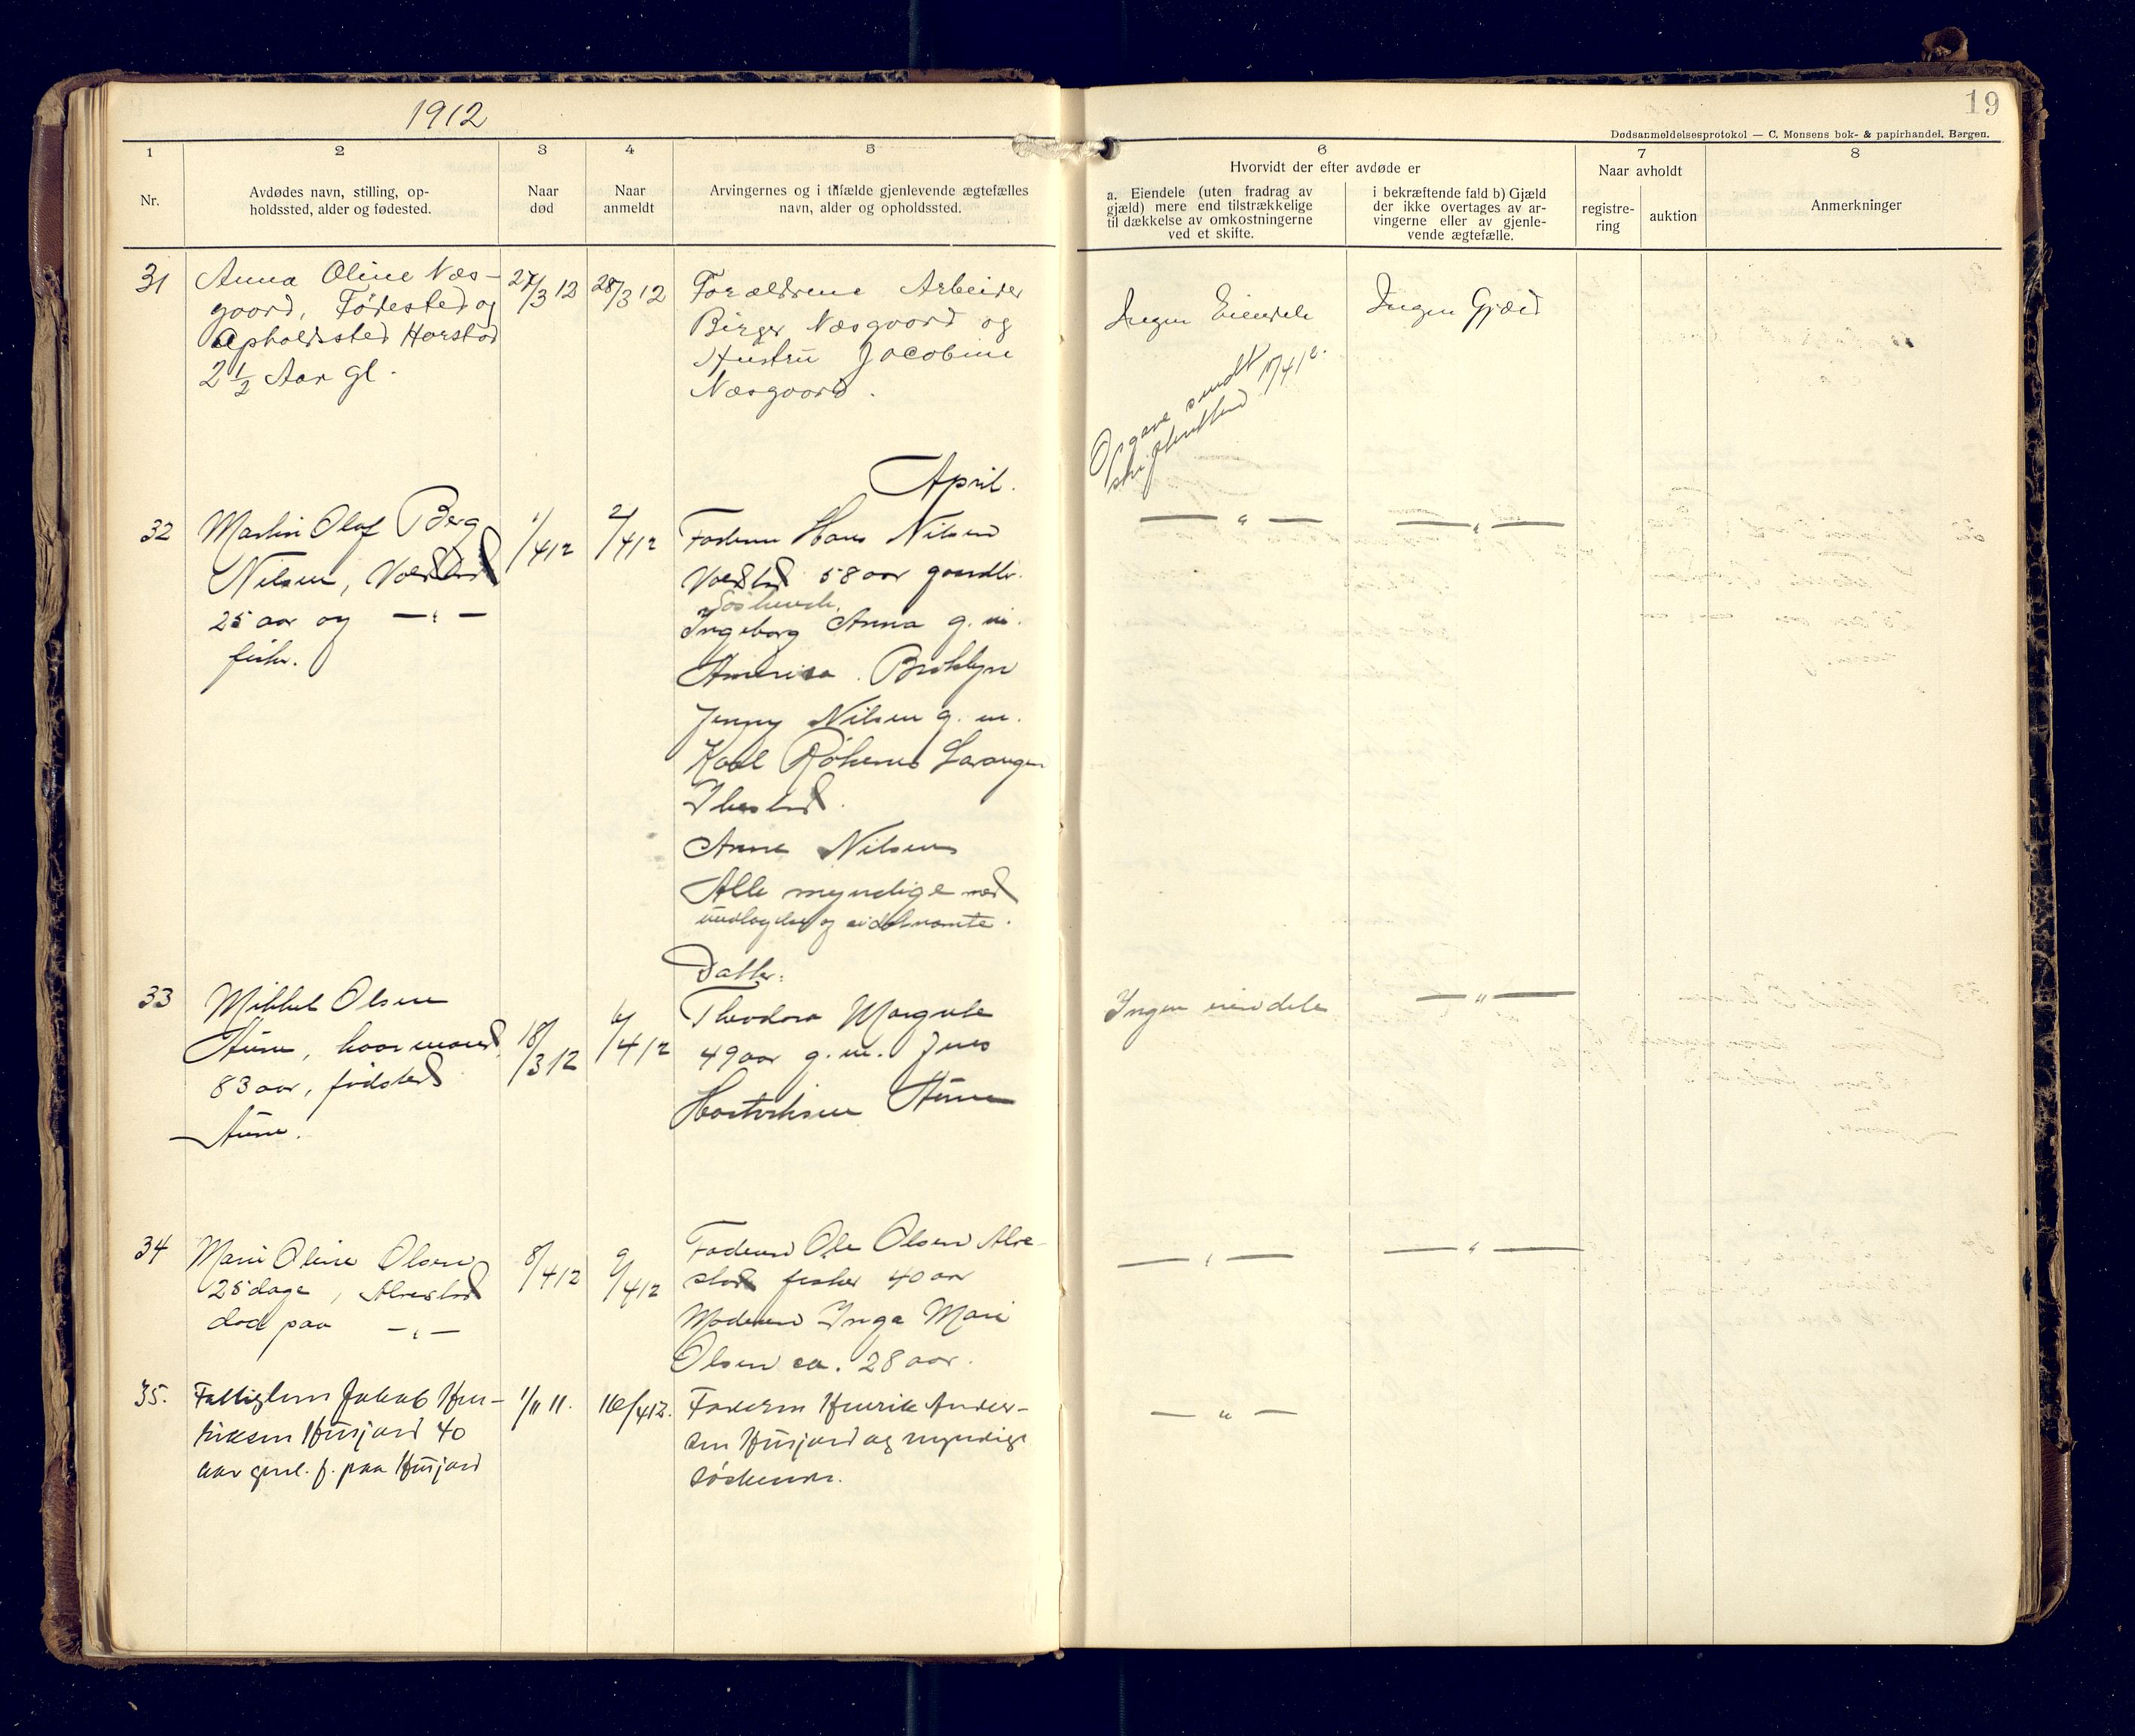 1912
19
Dødsanmeldelsesprotokol — C. Monsens bok- & papirhandel, Bergen.
1
2
3
4
5
6
7
8
Nr.
Avdødes navn, stilling, op-
holdssted, alder og fødested.
Naar
død
Naar
anmeldt
Arvingernes og i tilfælde gjenlevende ægtefælles
navn, alder og opholdssted.
Hvorvidt der efter avdøde er
a. Eiendele (uten fradrag av
gjæld) mere end tilstrækkelige
til dækkelse av omkostningerne
ved et skifte.
i bekræftende fald b) Gjæld
der ikke overtages av ar-
vingerne eller av gjenle-
vende ægtefælle.
Naar avholdt
registre-
ring
auktion
Anmerkninger
31
Anna Oline Næs-
gaard, Fødested og
Opholdssted Harstad
2 1/2 Aar gl.
27/3 12
28/3 12
Forældrene Arbeider
Birger Næsgaard og
Hustru Jacobine
Næsgaard.
Ingen Eiendele
Ingen Gjæld
Opgave sendt
skifteretten 17/4 12.
April.
32
Martin Olaf Berg
Nilsen,
25 aar og — " —
fisker.
1/4 12
2/4 12
Faderen Hans Nilsen
58 aar gaardbr.
Søskende.
Ingeborg Anna g. m.
America. Broklyn
Jenny Nilsen g. m.
Karl Lavangen
Ibestad.
Anna Nilsen
Alle myndige med
undtagelse og sidstnævnte.
— " —
— " —
33
Mikkel Olsen
Aune, kaarmand,
83 aar, fødested
Aune.
18/3 12
6/4 12
Datter:
Theodora Margrete
49 aar g. m. Jens
Aune
Ingen eiendele
— " —
34
Marie Oline Olsen
25 dage, Alvestad
død paa — " —
8/4 12
9/4 12
Faderen Ole Olsen Alve-
stad fisker 40 aar
Moderen Inga Marie
Olsen ca. 28 aar.
— " —
— " —
35.
Fattiglem Jakob Hen-
riksen Husjord 40
aar gml. f. paa Husjord
1/11 11.
16/4 12.
Faderen Henrik Ander-
sen Husjord og myndige
søskende.
— " —